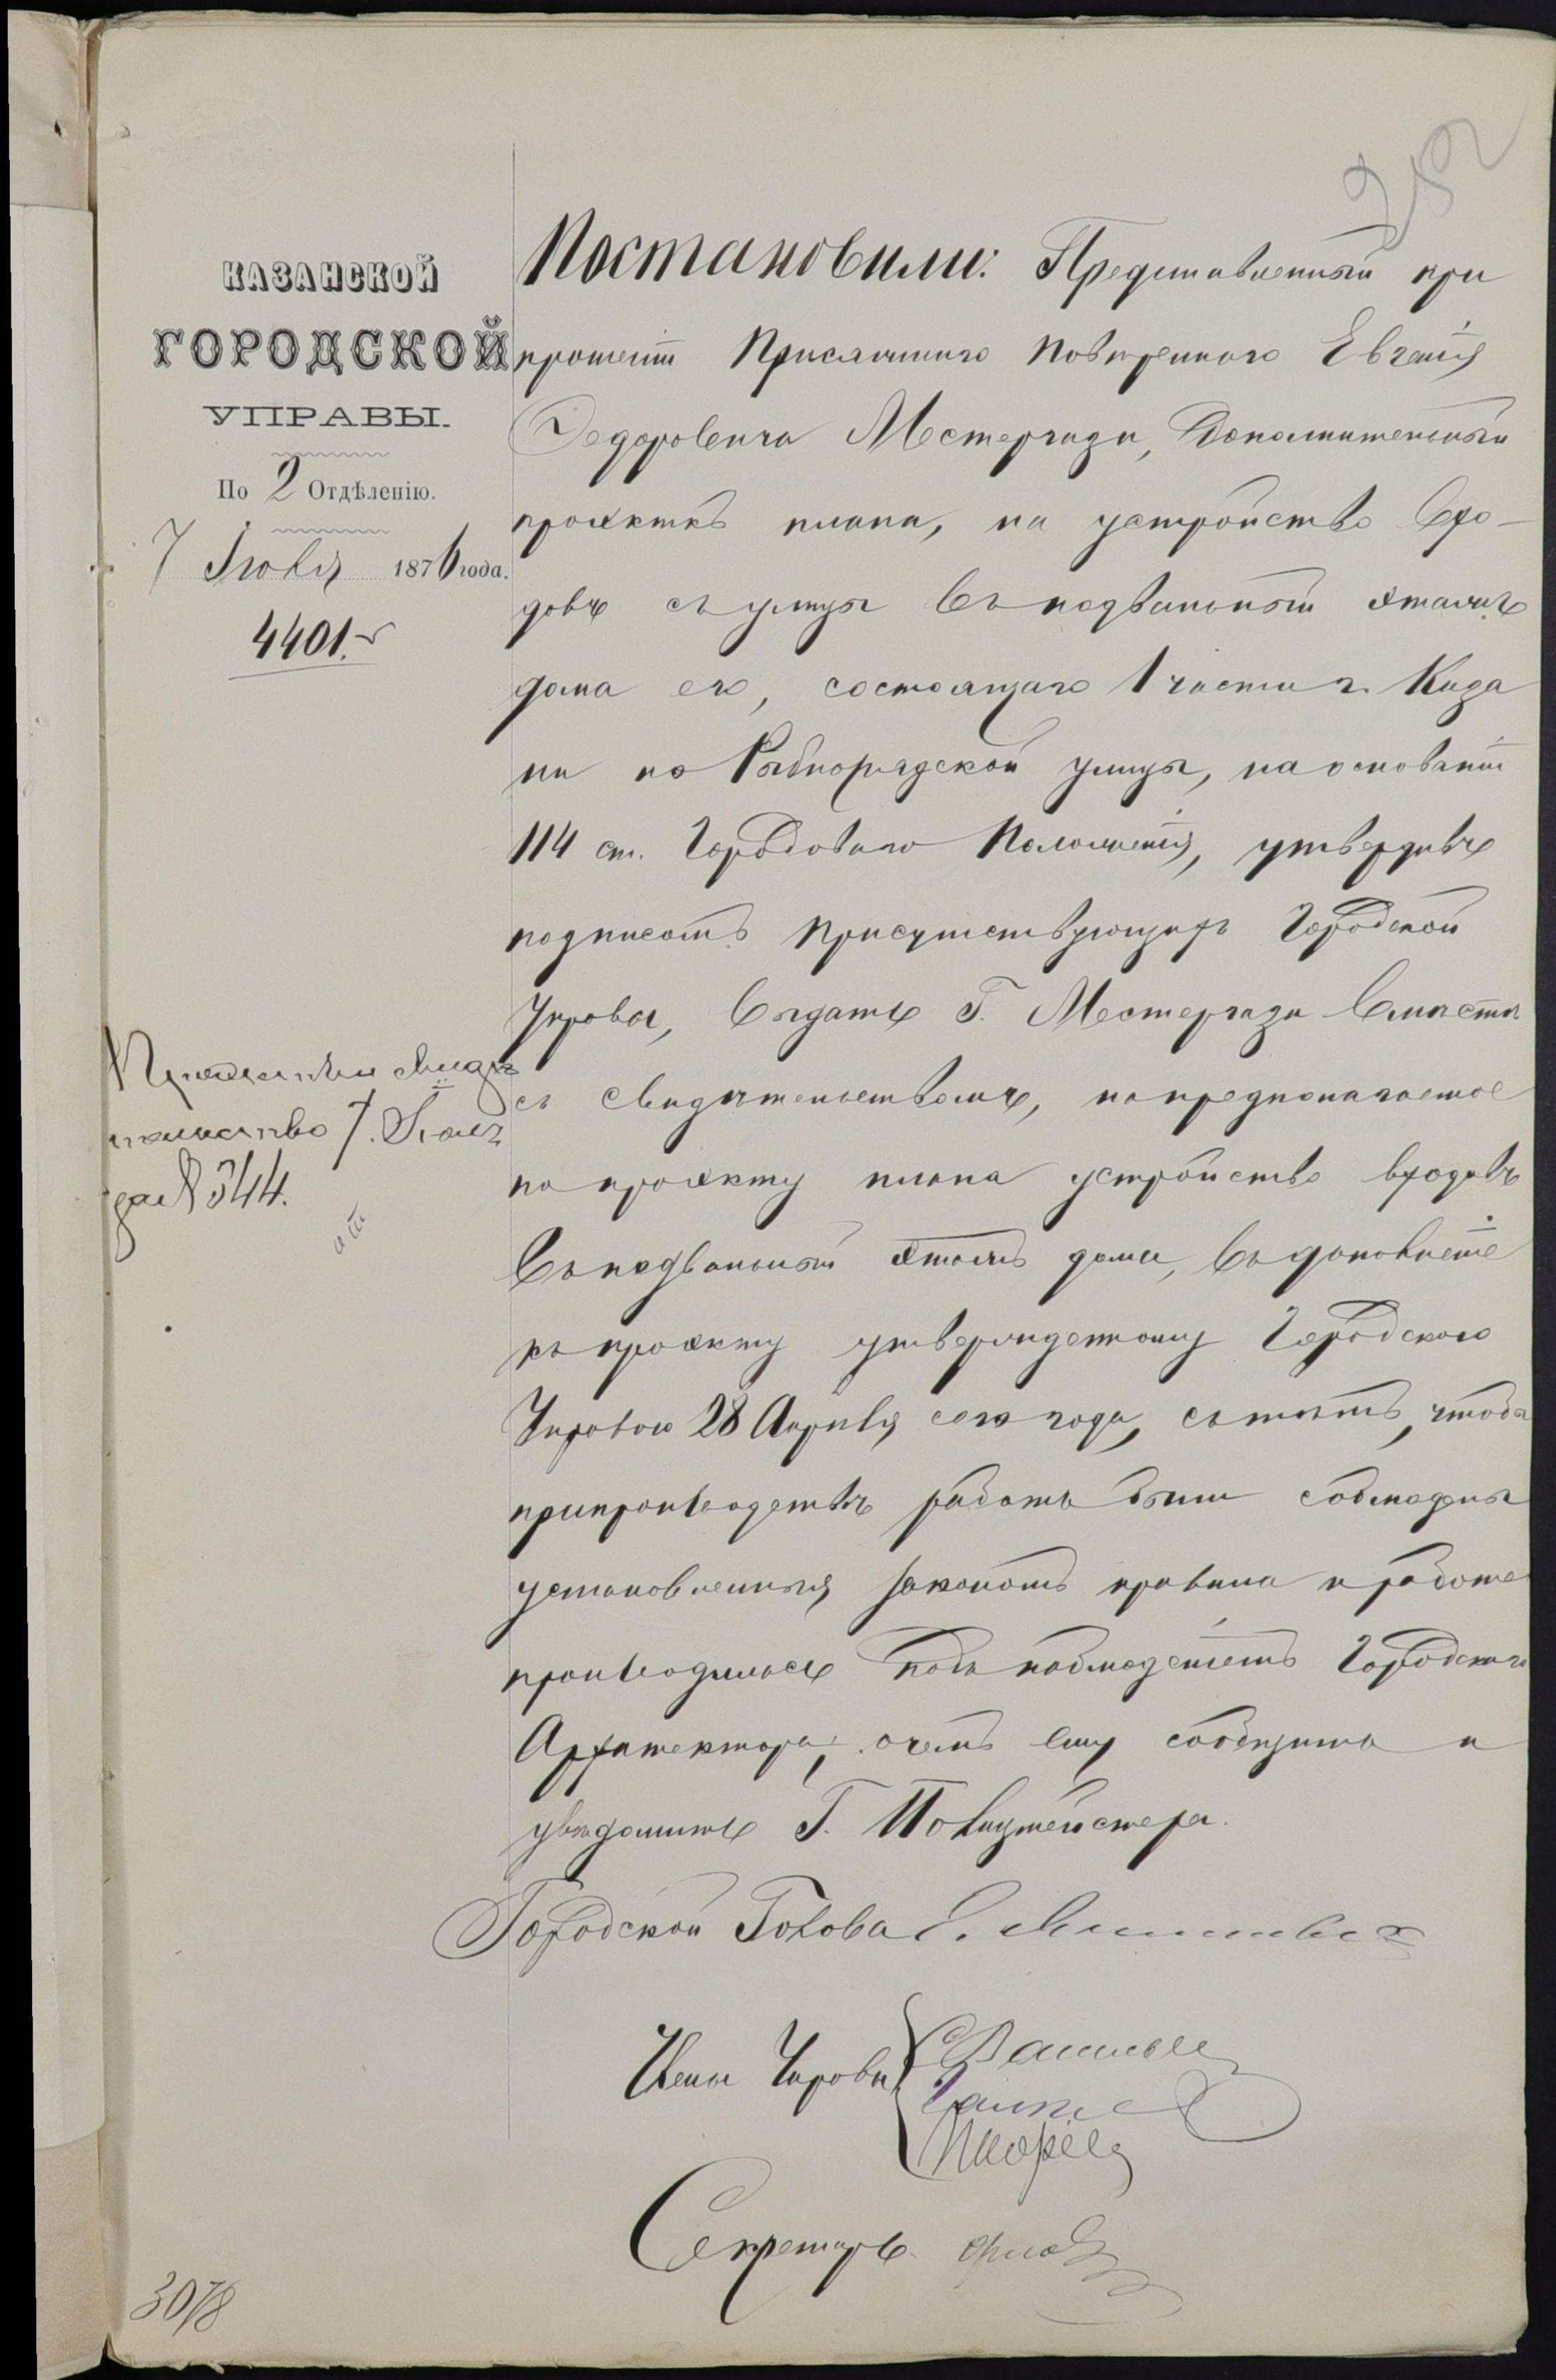 КАЗАНСКОЙ
ГОРОДСКОЙ
УПРАВЫ.
По 2 Отдѣленію.
7 Іюля 1876 года.
4401.
Постановили: Представленный при
прошеніи Присяжнаго Повѣреннаго Евгенія
Федоровича Местергази, Дополнительный
проэктъ плана, на устройство вхо-
довъ съ улицы въ подвальный этажъ
дома его, состоящаго 1 части г. Каза
ни на Рыбнорядской улицы, на основаніи
114 ст. Городоваго Положенія, утвердивъ
подписомъ присутствующихъ Городской
Управы, выдать Г. Местергази вместѣ
съ свидѣтельствомъ, на предполагаемое
по проэкту плана устройство входовъ
въ подвальный этажъ дома, въ дополненіе
къ проэкту утвержденному Городскою
Управою 28 Апрѣля сего года, съ тѣмъ, чтобы
при производствѣ работъ были соблюдены
установленныя закономъ правила и работа
производилась подъ наблюденіемъ Городскаго
Архитектора, о чемъ ему сообщить и
увѣдомить Г. Полицмейстера.
Городской Голова
Члены Управы
Секретарь
свидѣ
тельство 7. Іюля
за № 544.
3078